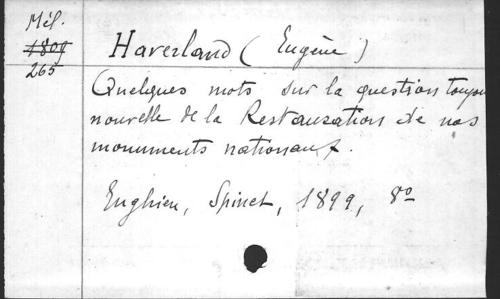 Mél.
1809
265
Haverland (Eugène)
Quelques mots sur la question toujou
nouvelle de la Restauration de nos
monuments nationaux.
Enghien, Spinet, 1899, 8º